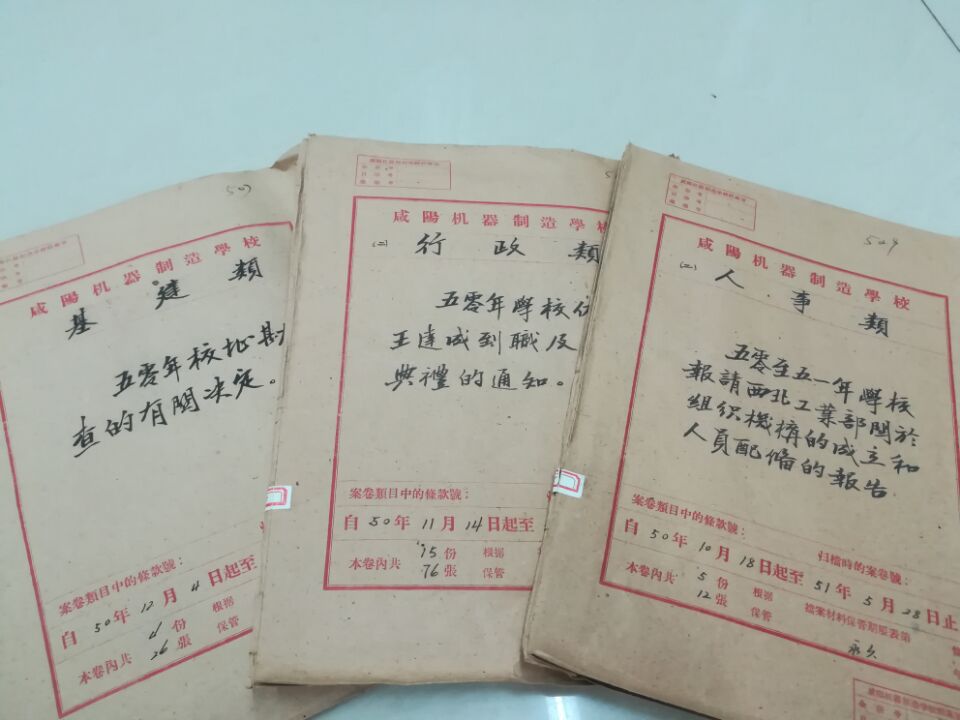 507
咸陽机器制造學校
基建類
五零年校址勘
查的有關決定。
案卷類目中的條款號：
自50年12月4日起至
本卷內共
4份
26張
根據
保管
咸陽机器制造學校
(二)
行政類
五零年學校
王達成到職及
典禮的通知。
案卷類目中的條款號：
自50年11月14日起至
本卷內共
15份
76張
根據
保管
509
咸陽机器制造學校
(二)
人事類
五零至五一年學校
報請西北工業部關於
組织機構的成立和
人員配備的報告
案卷類目中的條款號：
归檔時的案卷號：
自50年10月18日起至51年5月28日止
本卷內共
5份
12張
根據
保管
檔案材料保管期限表第
永久